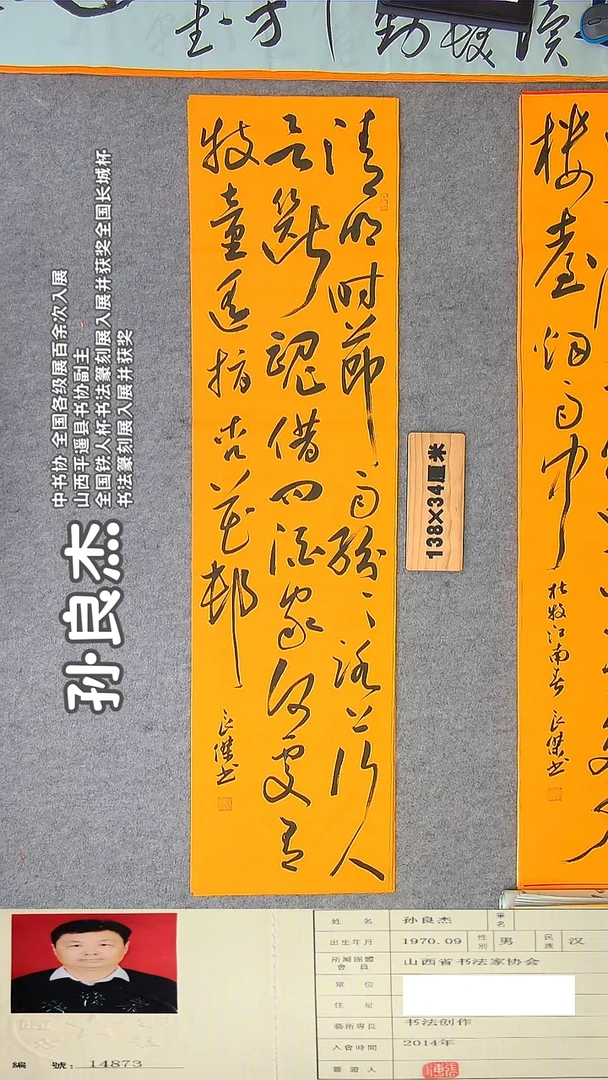 清明时节雨纷〻路上行人
欲斷魂借问酒家何處有
牧童遥指杏花邨
良傑书
138×34厘米
楼臺烟雨中
杜牧江南春 良傑书
中书协 全国各级展百余次入展
山西平遥县书协副主
全国铁人杯书法篆刻展入展并获奖全国长城杯
书法篆刻展入展并获奖
孙良杰
姓 名 孙良杰 筆名
出生年月 1970.09 性別 男 民族 汉
所屬團體會員 山西省书法家协会
單 位
住 址
藝術專長 书法创作
入會時間 2014年
簽證人
編 號: 14873